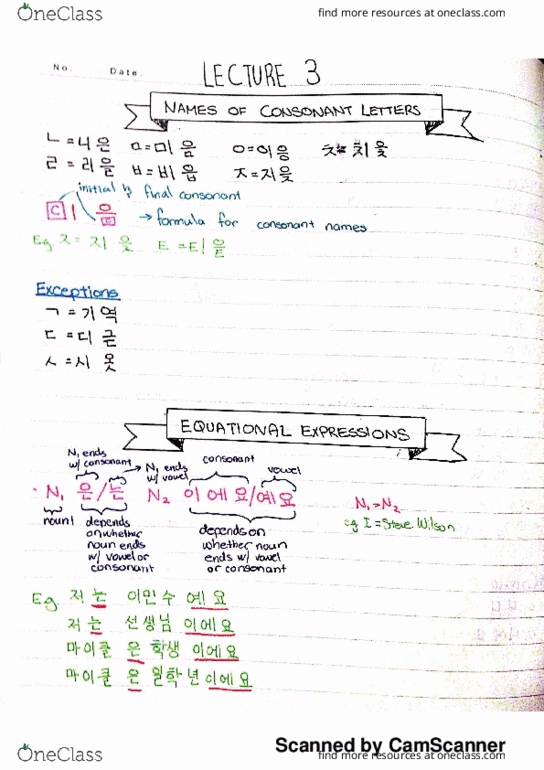 OneClass
find more resources at oneclass.com
No.
Date.
LECTURE 3
NAMES OF CONSONANT LETTERS
ㄴ = 니은 ㅁ = 미음 ㅇ = 이응 ㅊ = 치읓
ㄹ = 리을 ㅂ = 비읍 ㅈ = 지읒
initial & final consonant
C ㅣ 으 C → formula for consonant names
Eg ㅈ = 지읒 ㅌ = 티읕
Exceptions
ㄱ = 기역
ㄷ = 디귿
ㅅ = 시옷
EQUATIONAL EXPRESSIONS
N₁ ends w/ consonant
N₁ ends w/ vowel
consonant
vowel
N₁ 은/는 N₂ 이에요/예요
N₁ = N₂
noun 1
depends on whether noun ends w/ vowel or consonant
depends on whether noun ends w/ vowel or consonant
eg I = Steve Wilson
Eg 저는 이민수예요
저는 선생님이에요
마이클은 학생이에요
마이클은 일학년이에요
Scanned by CamScanner
OneClass
find more resources at oneclass.com